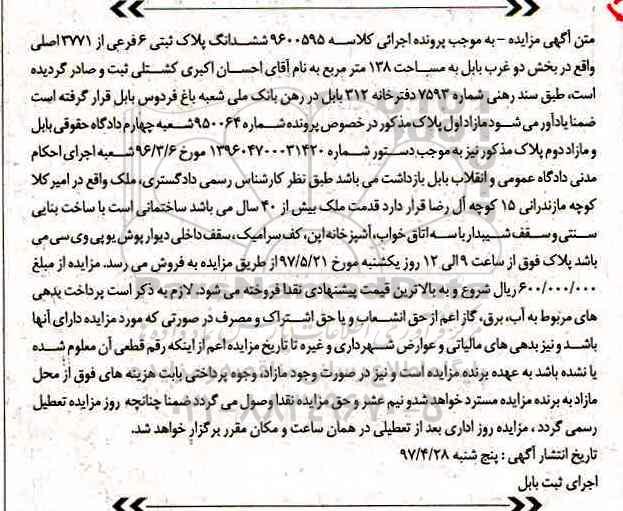 متن آگهی مزایده - به موجب پرونده اجرائی کلاسه ۹۶۰۰۵۹۵ ششدانگ پلاک ثبتی ۶ فرعی از ۳۷۷۱ اصلی
واقع در بخش دو غرب بابل به مساحت ۱۳۸ متر مربع به نام آقای احسان اکبری کشتلی ثبت و صادر گردیده
است، طبق سند رهنی شماره ۷۵۹۳ دفترخانه ۳۱۲ بابل در رهن بانک ملی شعبه باغ فردوس بابل قرار گرفته است
ضمنا یادآور می شود مازاد اول پلاک مذکور در خصوص پرونده شماره ۹۵۰۰۶۴ شعبه چهارم دادگاه حقوقی بابل
و مازاد دوم پلاک مذکور نیز به موجب دستور شماره ۱۳۹۶۰۴۷۰۰۰۳۱۴۲۰ مورخ ۹۶/۳/۶ شعبه اجرای احکام
مدنی دادگاه عمومی و انقلاب بابل بازداشت می باشد طبق نظر کارشناس رسمی دادگستری، ملک واقع در امیرکلا
کوچه مازندرانی ۱۵ کوچه آل رضا قرار دارد قدمت ملک بیش از ۴۰ سال می باشد ساختمانی است با ساخت بنایی
سنتی و سقف شیبدار با سه اتاق خواب، آشپزخانه اپن، کف سرامیک، سقف داخلی دیوار پوش یو پی وی سی می
باشد پلاک فوق از ساعت ۹ الی ۱۲ روز یکشنبه مورخ ۹۷/۵/۲۱ از طریق مزایده به فروش می رسد. مزایده از مبلغ
۶۰۰/۰۰۰/۰۰۰ ریال شروع و به بالاترین قیمت پیشنهادی نقدا فروخته می شود. لازم به ذکر است پرداخت بدهی
های مربوط به آب، برق، گاز اعم از حق انشعاب و یا حق اشتراک و مصرف در صورتی که مورد مزایده دارای آنها
باشد و نیز بدهی های مالیاتی و عوارض شهرداری و غیره تا تاریخ مزایده اعم از اینکه رقم قطعی آن معلوم شده
یا نشده باشد به عهده برنده مزایده است و نیز در صورت وجود مازاد، وجوه پرداختی بابت هزینه های فوق از محل
مازاد به برنده مزایده مسترد خواهد شد و نیم عشر و حق مزایده نقدا وصول می گردد ضمنا چنانچه روز مزایده تعطیل
رسمی گردد ، مزایده روز اداری بعد از تعطیلی در همان ساعت و مکان مقرر برگزار خواهد شد.
تاریخ انتشار آگهی : پنج شنبه ۹۷/۴/۲۸
اجرای ثبت بابل